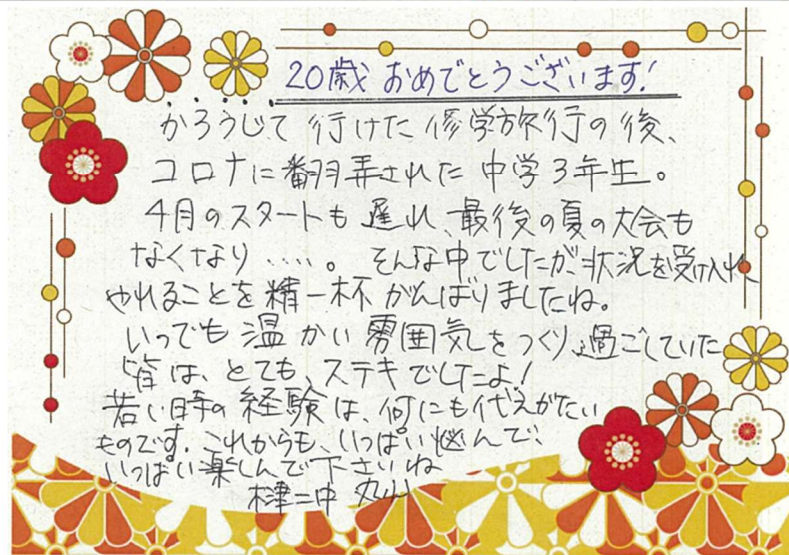 20歳 おめでとうございます!
かろうじて 行けた 修学旅行の後、
コロナに翻弄された 中学3年生。
4月のスタートも 遅れ、最後の夏の大会も
なくなり……。 そんな中でしたが、状況を受け入れ
やれることを 精一杯 がんばりましたね。
いっでも 温かい 雰囲気をつくり、過ごしていた
皆は、とても、ステキでしたよ!
若い時の 経験は、何にも代えがたい
ものです。これからも、いっぱい悩んで、
いっぱい楽しんで下さいね
二中 丸山